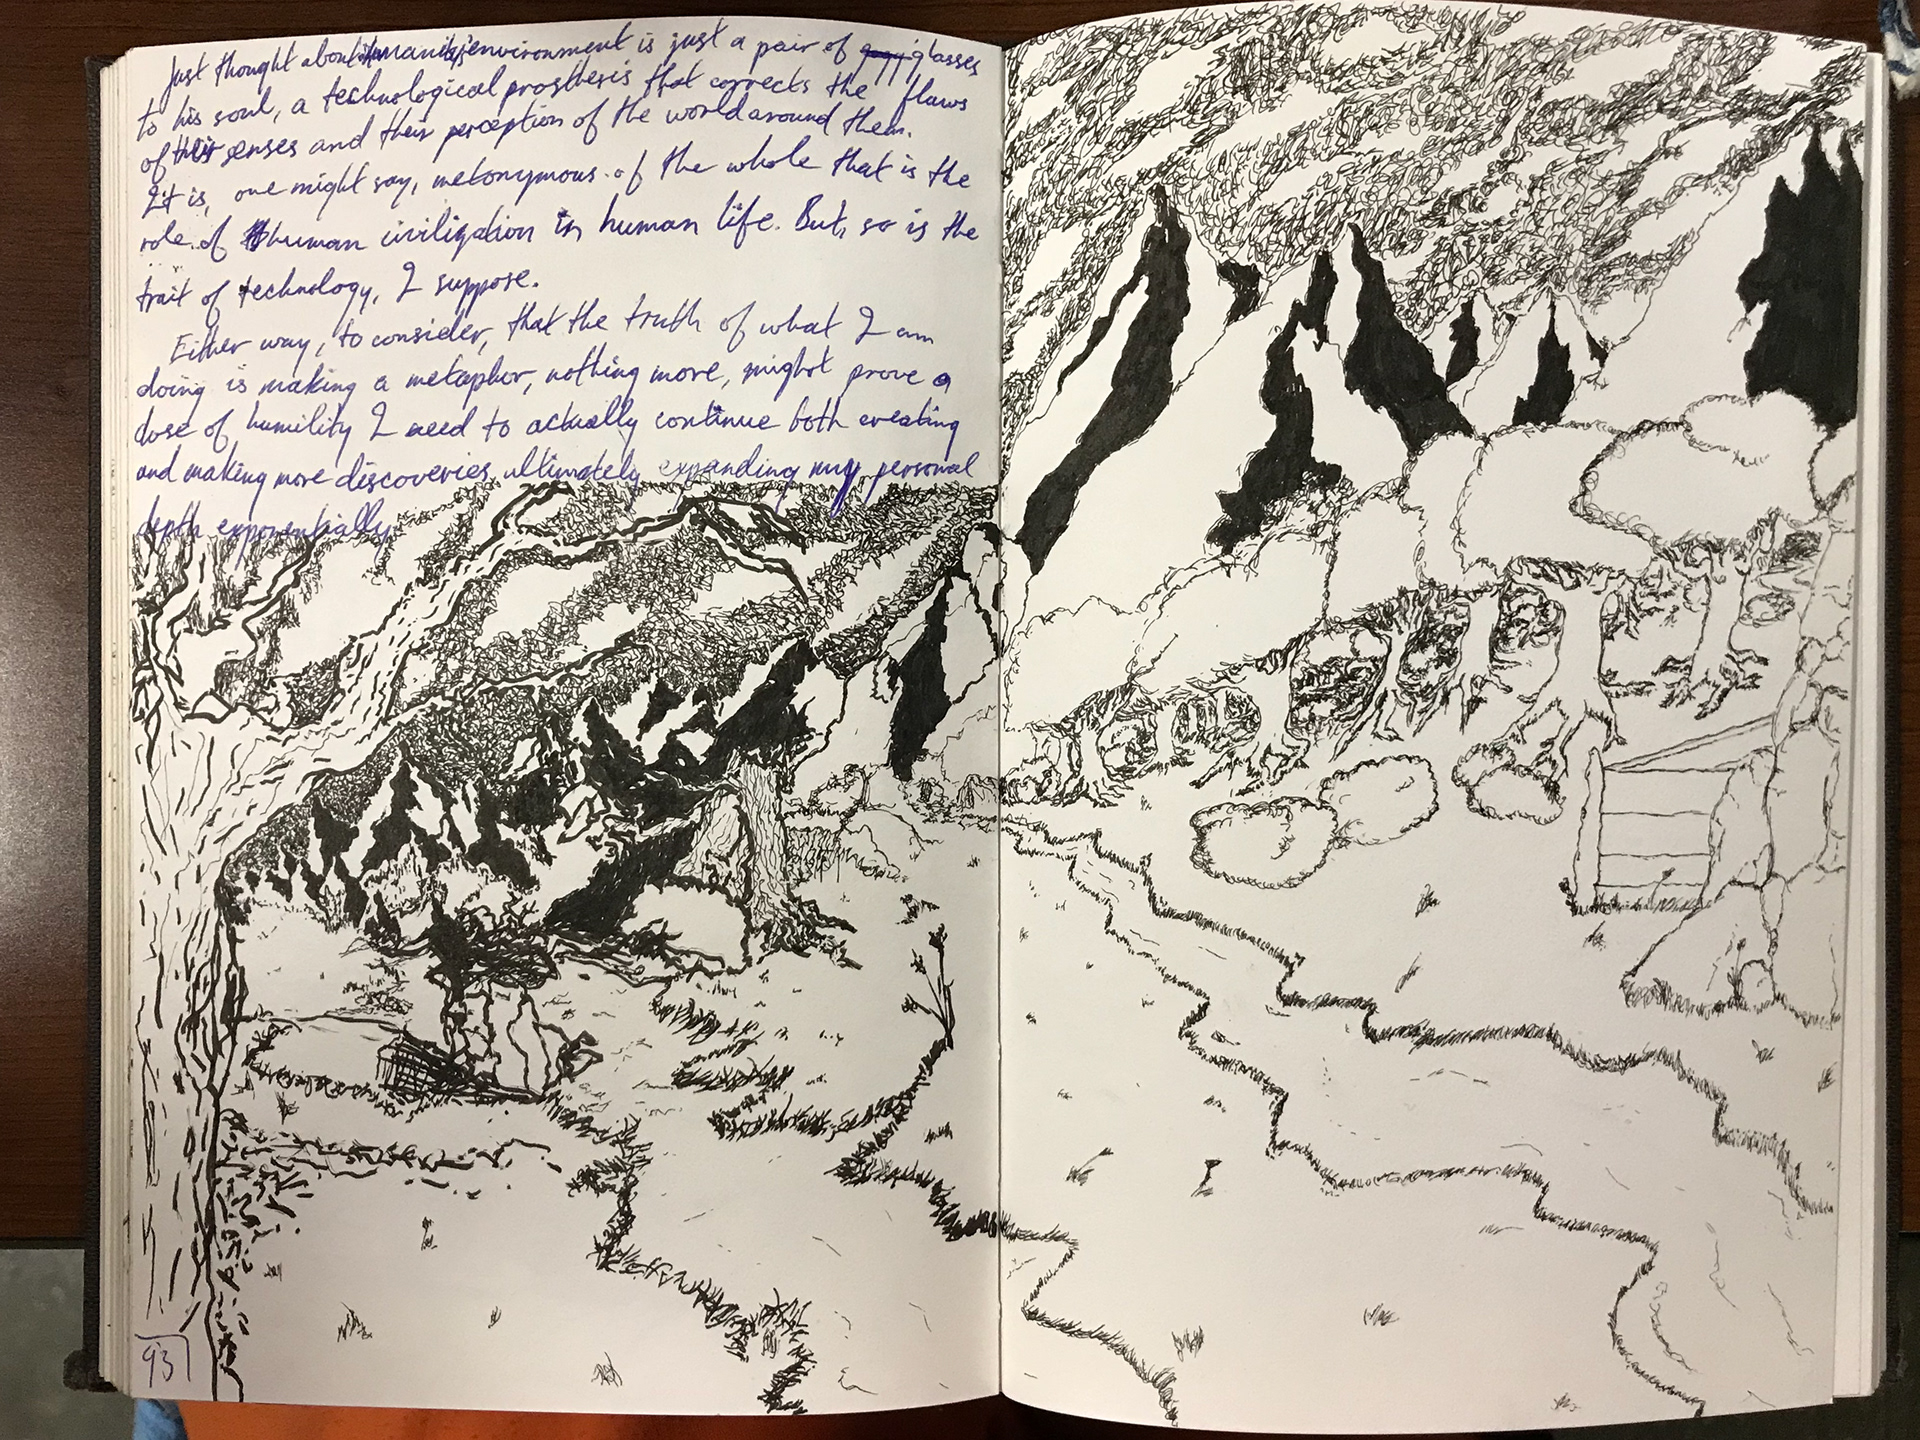 Just thought about humanity's environment is just a pair of glasses
to his soul, a technological prosthesis that corrects the flaws
of their senses and their perception of the world around them.
It is, one might say, metonymous of the whole that is the
role of human civilization in human life. But, so is the
trait of technology, I suppose.
Either way, to consider, that the truth of what I am
doing is making a metaphor, nothing more, might prove a
dose of humility I need to actually continue both creating
and making more discoveries, ultimately expanding my personal
depth exponentially.
93